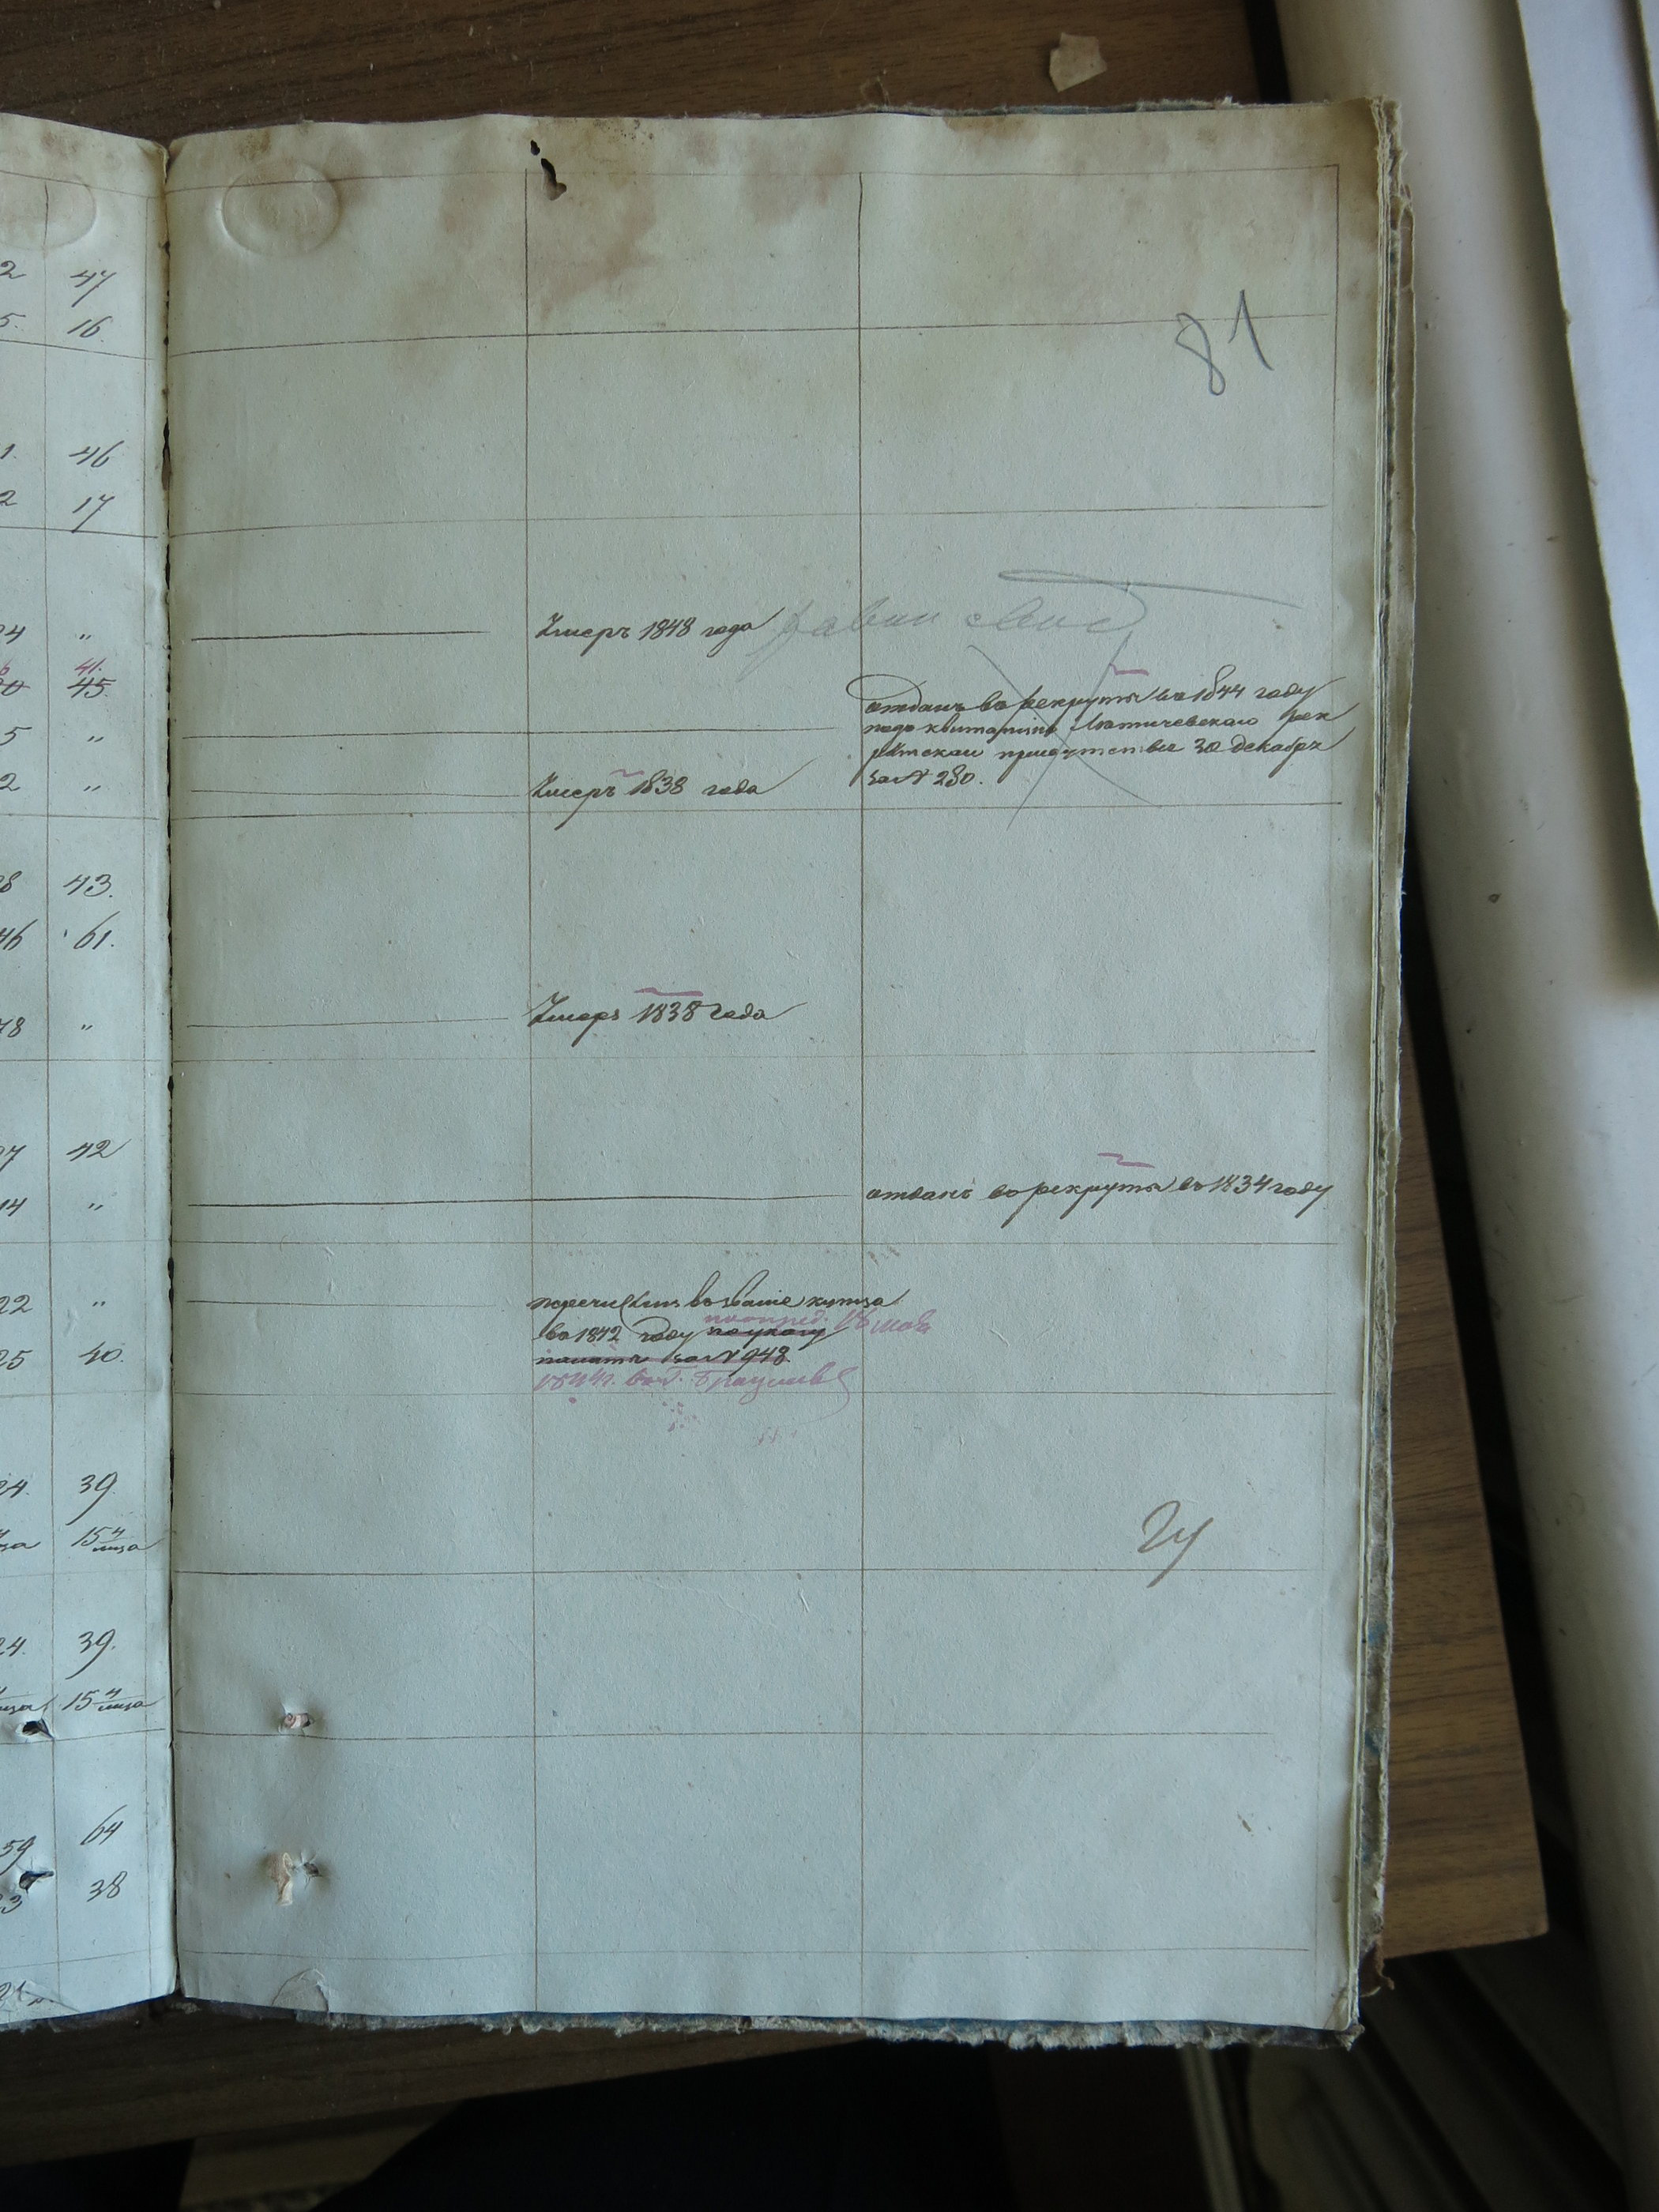 2 47
5. 16.
81
1. 46
2 17
4 "
Умеръ 1848 года
41.
45.
отданъ въ рекруты въ 1844 году
5 "
подъ квитанцію Летичевскаго рек
рутскаго присутствія 30 декабря
за № 280.
2 "
Умеръ 1838 года
28 43.
46 61.
78 "
Умеръ 1838 года
27 42
14 "
отданъ въ рекруты въ 1834 году
22 "
перечисленъ въ званіе купца
въ 1842 году по указу
палаты за № 948.
25 40.
24. 39.
15 4/мца
24. 39.
15 4/мца
59 64
23 38